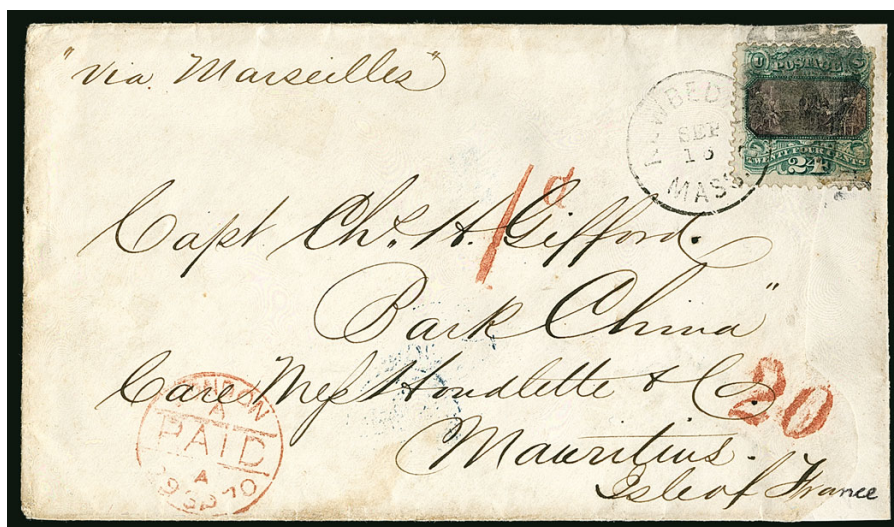 "via Marseilles"
U S
POSTAGE
TWENTY FOUR CENTS
24
SEP
16
MASS.
1 d
Capt Chs. H. Gifford.
Bark China"
Care Mess Houdlette & Co.
20
Mauritius.
Isle of France
LONDON
A
PAID
A
70